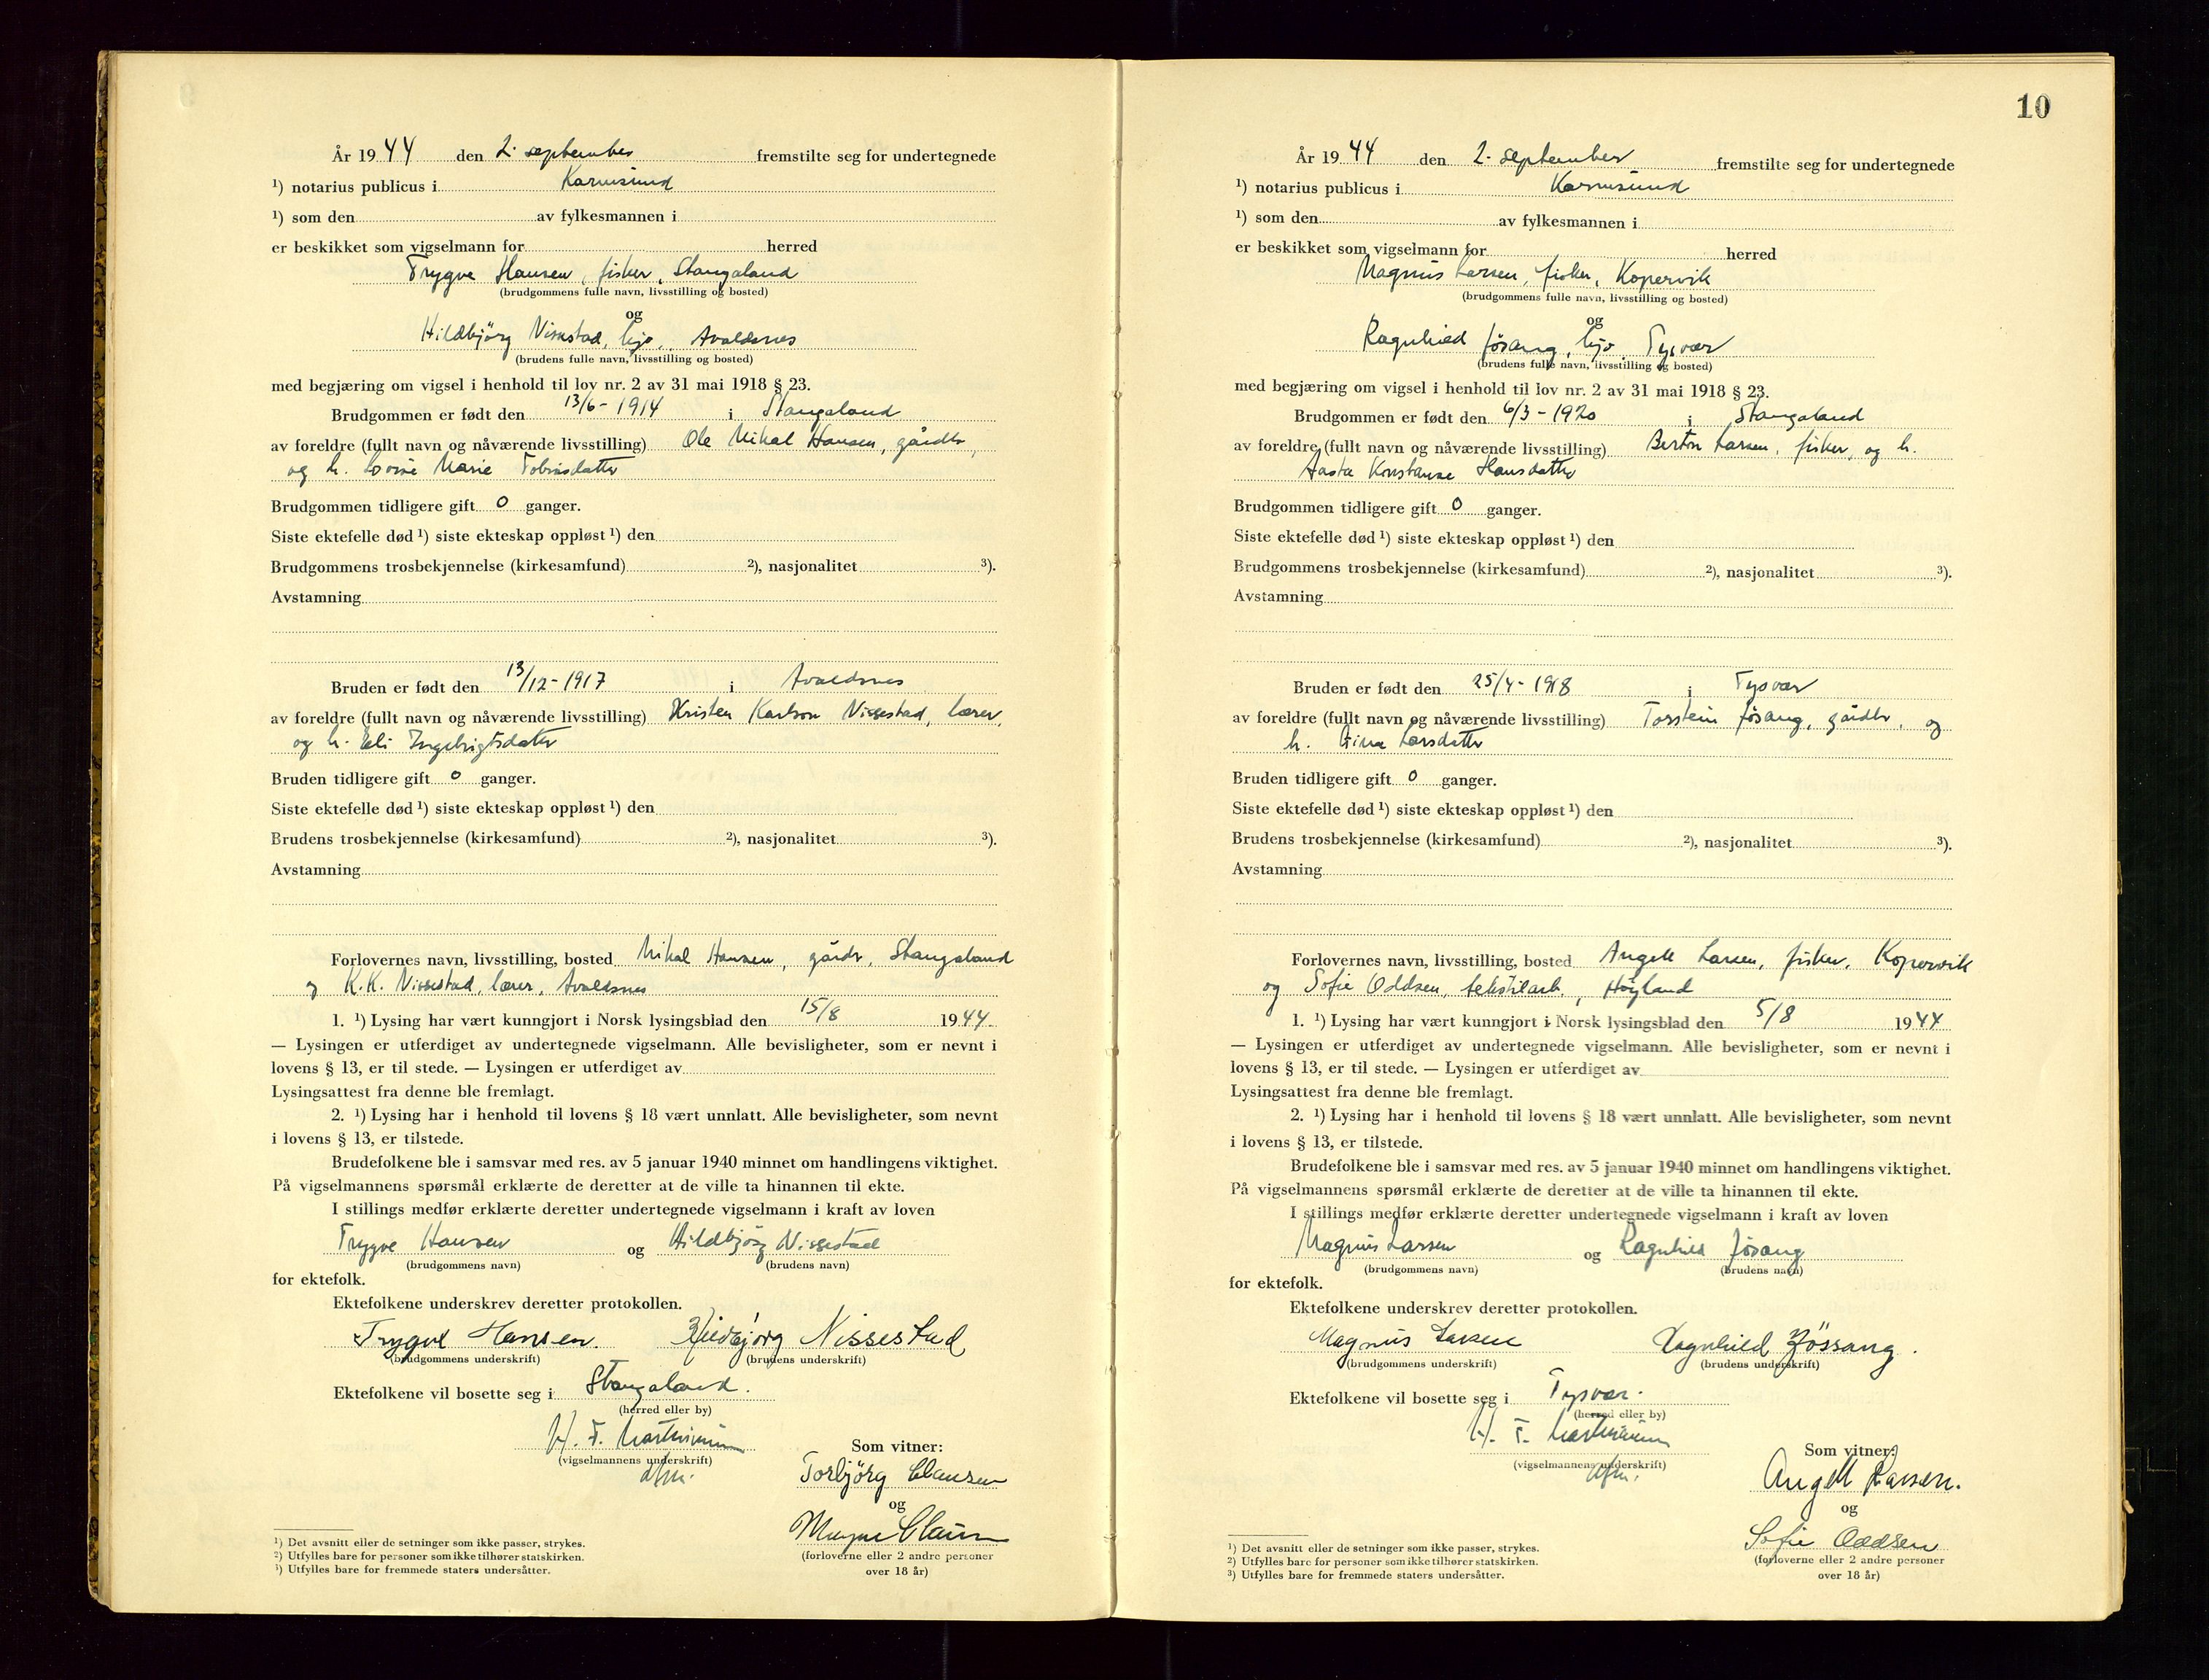 År 1944 den 2. september fremstilte seg for undertegnede
¹) notarius publicus i Karmsund
¹) som den av fylkesmannen i
er beskikket som vigselmann for herred
Trygve Hansen, fisker, Stangaland
(brudgommens fulle navn, livsstilling og bosted)
og
Hildbjörg Nissestad, hjv., Avaldsnes
(brudens fulle navn, livsstilling og bosted)
med begjæring om vigsel i henhold til lov nr. 2 av 31 mai 1918 § 23.
Brudgommen er født den 13/6 - 1914 i Stangaland
av foreldre (fullt navn og nåværende livsstilling) Ole Mikal Hansen, gårdbr,
og h. Lovise Marie Tobiasdatter
Brudgommen tidligere gift 0 ganger.
Siste ektefelle død ¹) siste ekteskap oppløst ¹) den
Brudgommens trosbekjennelse (kirkesamfund) ²), nasjonalitet ³).
Avstamning
Bruden er født den 13/12 - 1917 i Avaldsnes
av foreldre (fullt navn og nåværende livsstilling) Kristen Karlson Nissestad, lærer,
og h. Eli Ingebrigtsdatter
Bruden tidligere gift 0 ganger.
Siste ektefelle død ¹) siste ekteskap oppløst ¹) den
Brudens trosbekjennelse (kirkesamfund) ²), nasjonalitet ³).
Avstamning
Forlovernes navn, livsstilling, bosted Mikal Hansen, gårdbr, Stangaland
og K.K. Nissestad, lærer, Avaldsnes
1. ¹) Lysing har vært kunngjort i Norsk lysingsblad den 15/8 1944.
— Lysingen er utferdiget av undertegnede vigselmann. Alle bevisligheter, som er nevnt i
lovens § 13, er til stede. — Lysingen er utferdiget av
Lysingsattest fra denne ble fremlagt.
2. ¹) Lysing har i henhold til lovens § 18 vært unnlatt. Alle bevisligheter, som nevnt
i lovens § 13, er tilstede.
Brudefolkene ble i samsvar med res. av 5 januar 1940 minnet om handlingens viktighet.
På vigselmannens spørsmål erklærte de deretter at de ville ta hinannen til ekte.
I stillings medfør erklærte deretter undertegnede vigselmann i kraft av loven
Trygve Hansen og Hildbjörg Nissestad
(brudgommens navn) (brudens navn)
for ektefolk.
Ektefolkene underskrev deretter protokollen.
Trygve Hansen. Hildbjørg Nissestad
(brudgommens underskrift) (brudens underskrift)
Ektefolkene vil bosette seg i Stangaland.
(herred eller by)
(vigselmannens underskrift)
Som vitner:
Torbjörg Clausen
og
(forloverne eller 2 andre personer
over 18 år)
¹) Det avsnitt eller de setninger som ikke passer, strykes.
²) Utfylles bare for personer som ikke tilhører statskirken.
³) Utfylles bare for fremmede staters undersåtter.
10
År 1944 den 2. september fremstilte seg for undertegnede
¹) notarius publicus i Karmsund
¹) som den av fylkesmannen i
er beskikket som vigselmann for herred
Magnus Larsen, fisker, Kopervik
(brudgommens fulle navn, livsstilling og bosted)
og
Ragnhild Jösang, hjv, Tysvær
(brudens fulle navn, livsstilling og bosted)
med begjæring om vigsel i henhold til lov nr. 2 av 31 mai 1918 § 23.
Brudgommen er født den 6/3 - 1920 i Stangaland
av foreldre (fullt navn og nåværende livsstilling) Berton Larsen, fisker, og h.
Aasta Konstanse Hansdatter
Brudgommen tidligere gift 0 ganger.
Siste ektefelle død ¹) siste ekteskap oppløst ¹) den
Brudgommens trosbekjennelse (kirkesamfund) ²), nasjonalitet ³).
Avstamning
Bruden er født den 25/4 - 1918 i Tysvær
av foreldre (fullt navn og nåværende livsstilling) Torstein Jösang, gårdbr, og
h. Gina Larsdatter
Bruden tidligere gift 0 ganger.
Siste ektefelle død ¹) siste ekteskap oppløst ¹) den
Brudens trosbekjennelse (kirkesamfund) ²), nasjonalitet ³).
Avstamning
Forlovernes navn, livsstilling, bosted Angell Larsen, fisker, Kopervik
og Sofie Oddsen, tekstilarb., Høyland
1. ¹) Lysing har vært kunngjort i Norsk lysingsblad den 5/8 1944
— Lysingen er utferdiget av undertegnede vigselmann. Alle bevisligheter, som er nevnt i
lovens § 13, er til stede. — Lysingen er utferdiget av
Lysingsattest fra denne ble fremlagt.
2. ¹) Lysing har i henhold til lovens § 18 vært unnlatt. Alle bevisligheter, som nevnt
i lovens § 13, er tilstede.
Brudefolkene ble i samsvar med res. av 5 januar 1940 minnet om handlingens viktighet.
På vigselmannens spørsmål erklærte de deretter at de ville ta hinannen til ekte.
I stillings medfør erklærte deretter undertegnede vigselmann i kraft av loven
Magnus Larsen og Ragnhild Jösang
(brudgommens navn) (brudens navn)
for ektefolk.
Ektefolkene underskrev deretter protokollen.
Magnus Larsen Ragnhild Jössang.
(brudgommens underskrift) (brudens underskrift)
Ektefolkene vil bosette seg i Tysvær.
(herred eller by)
(vigselmannens underskrift)
Som vitner:
Angell Larsen.
og
Sofie Oddsen
(forloverne eller 2 andre personer
over 18 år)
¹) Det avsnitt eller de setninger som ikke passer, strykes.
²) Utfylles bare for personer som ikke tilhører statskirken.
³) Utfylles bare for fremmede staters undersåtter.